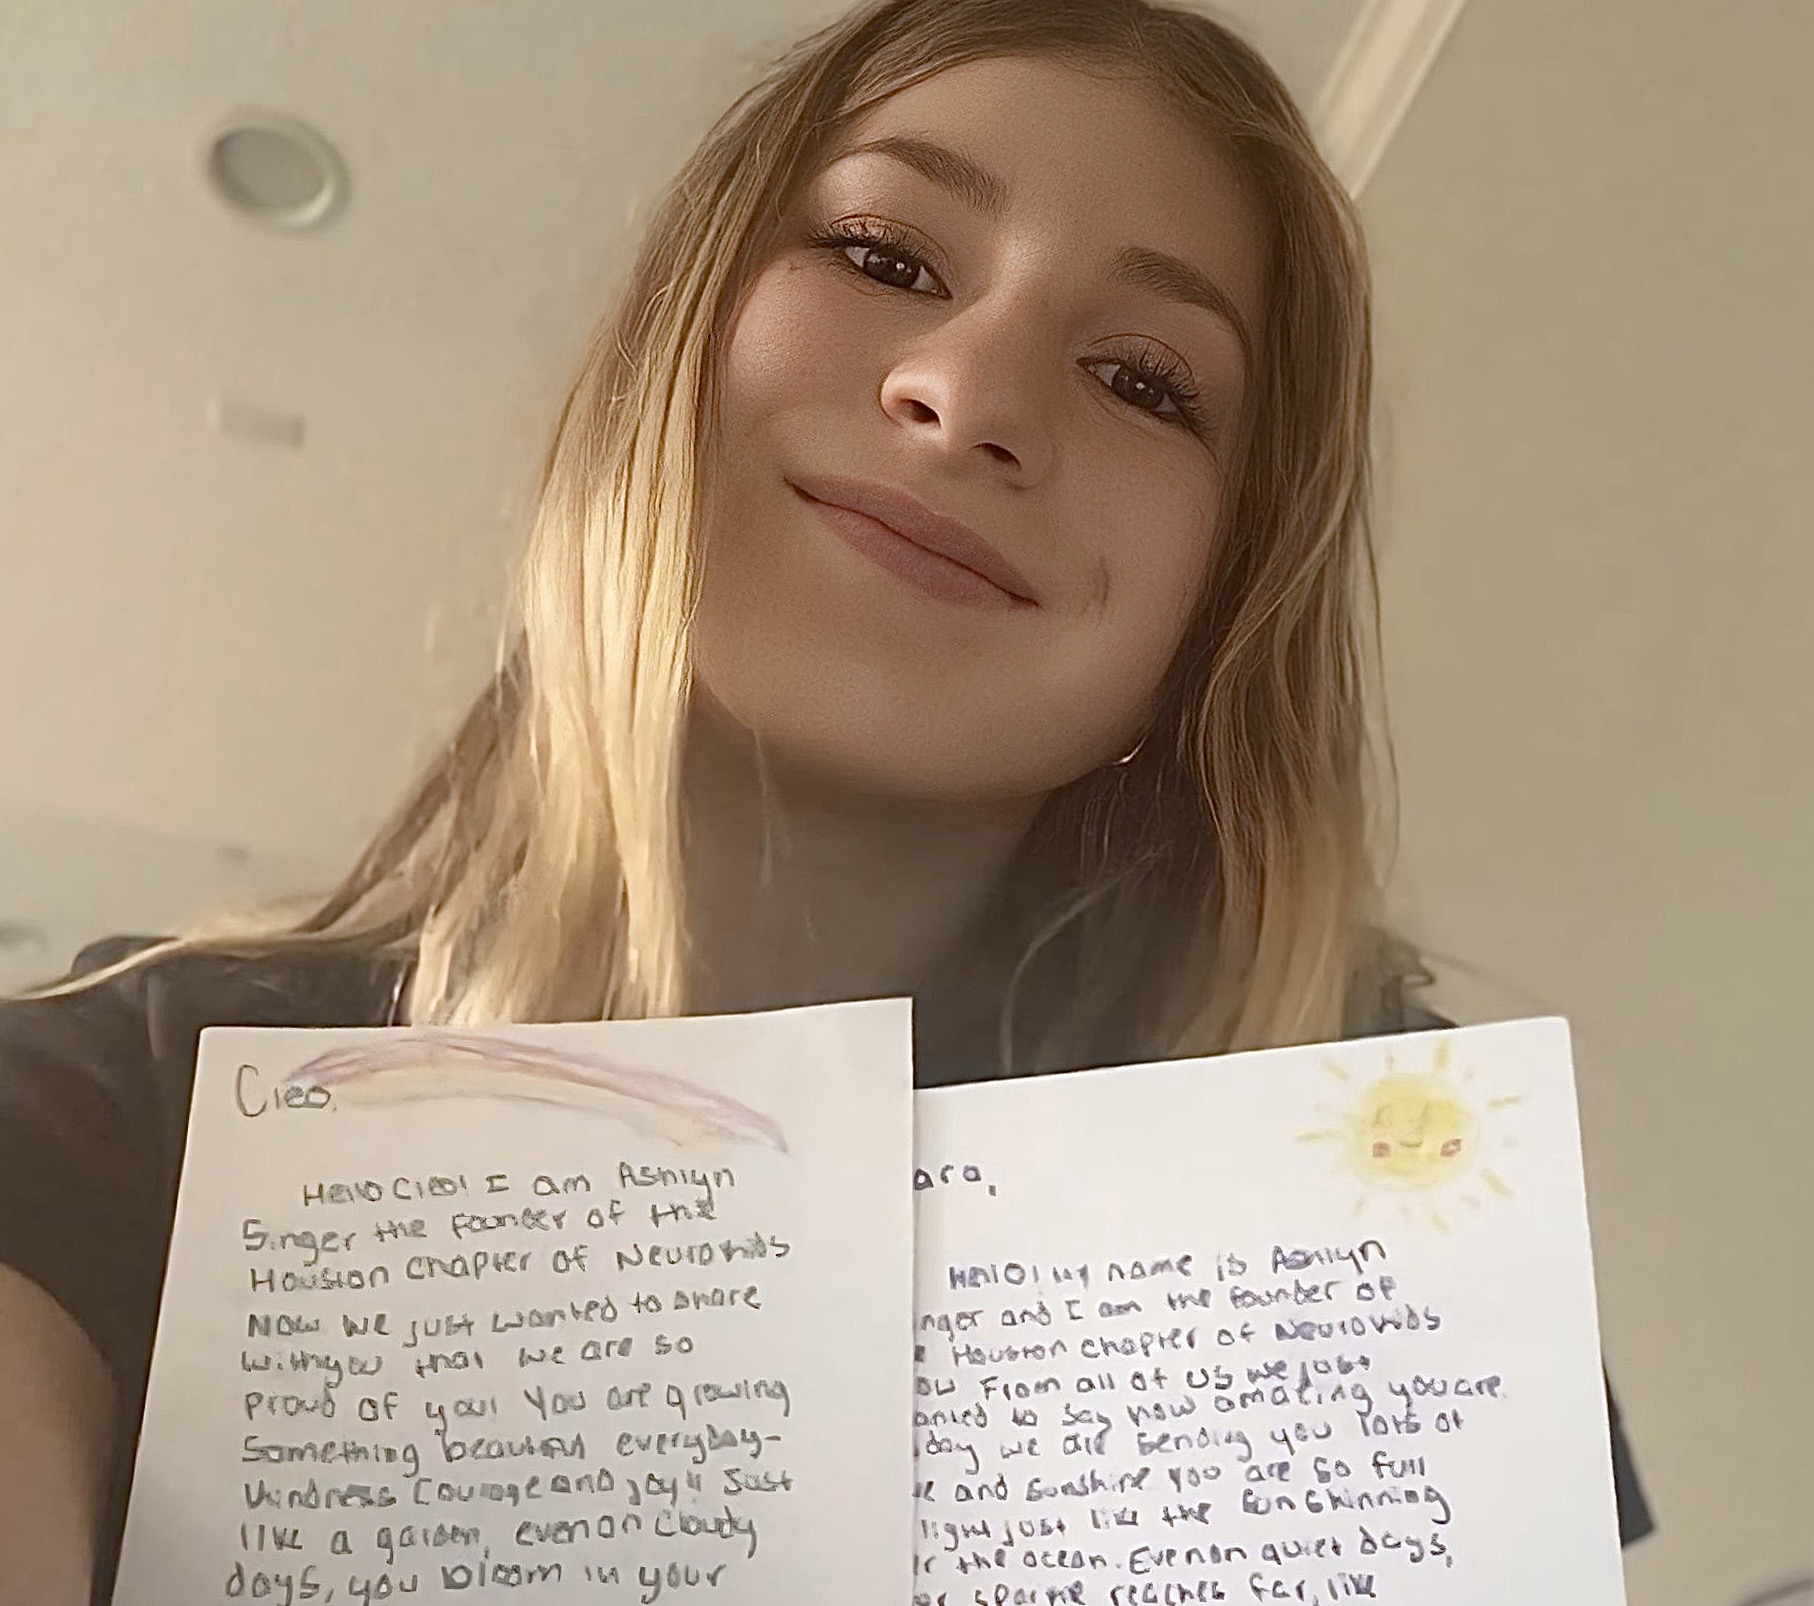 Cleo,
Hello Cleo! I am Ashlyn
Singer the founder of the
Houston chapter of Neurokids
Now we just wanted to share
with you that we are so
proud of you! You are growing
Something beautiful everyday-
Kindness Courage and joy!! Just
like a garden, even on cloudy
days, you bloom in your
ara,
Hello! My name is Ashlyn
nger and I am the founder of
e Houston chapter of Neurokids
ow From all of us we just
anted to say how amazing you are.
day we are sending you lots of
e and sunshine you are so full
light just like the sun shinning
r the ocean. Even on quiet days,
or sparkle reaches far, like